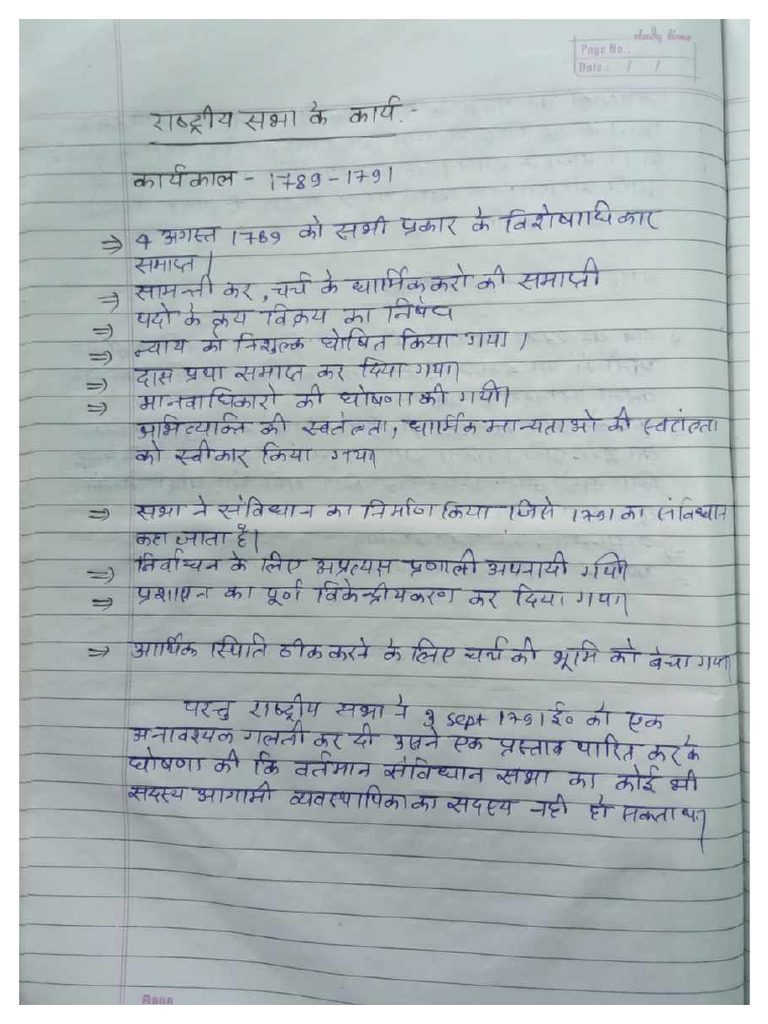 study time
Page No.:
Date: / /
राष्ट्रीय सभा के कार्य:-
कार्यकाल - 1789-1791
⇒ 4 अगस्त 1789 को सभी प्रकार के विशेषाधिकार
समाप्त।
⇒ सामन्ती कर, चर्च के धार्मिक करो की समाप्ती
⇒ पदो के क्रय विक्रय का निषेध
⇒ न्याय को निशुल्क घोषित किया गया।
⇒ दास प्रथा समाप्त कर दिया गया।
⇒ मानवाधिकारो की घोषणा की गयी।
अभिव्यक्ति की स्वतंत्रता, धार्मिक मान्यताओ की स्वतंत्रता
को स्वीकार किया गया।
⇒ सभा ने संविधान का निर्माण किया जिसे 1791 का संविधान
कहा जाता है।
⇒ निर्वाचन के लिए अप्रत्यक्ष प्रणाली अपनायी गयी।
⇒ प्रशासन का पूर्ण विकेन्द्रीयकरण कर दिया गया।
⇒ आर्थिक स्थिति ठीक करने के लिए चर्च की भूमि को बेचा गया।
परन्तु राष्ट्रीय सभा ने 3 Sept 1791 ई० को एक
अनावश्यक गलती कर दी उसने एक प्रस्ताव पारित करके
घोषणा की कि वर्तमान संविधान सभा का कोई भी
सदस्य आगामी व्यवस्थापिका का सदस्य नही हो सकता था।